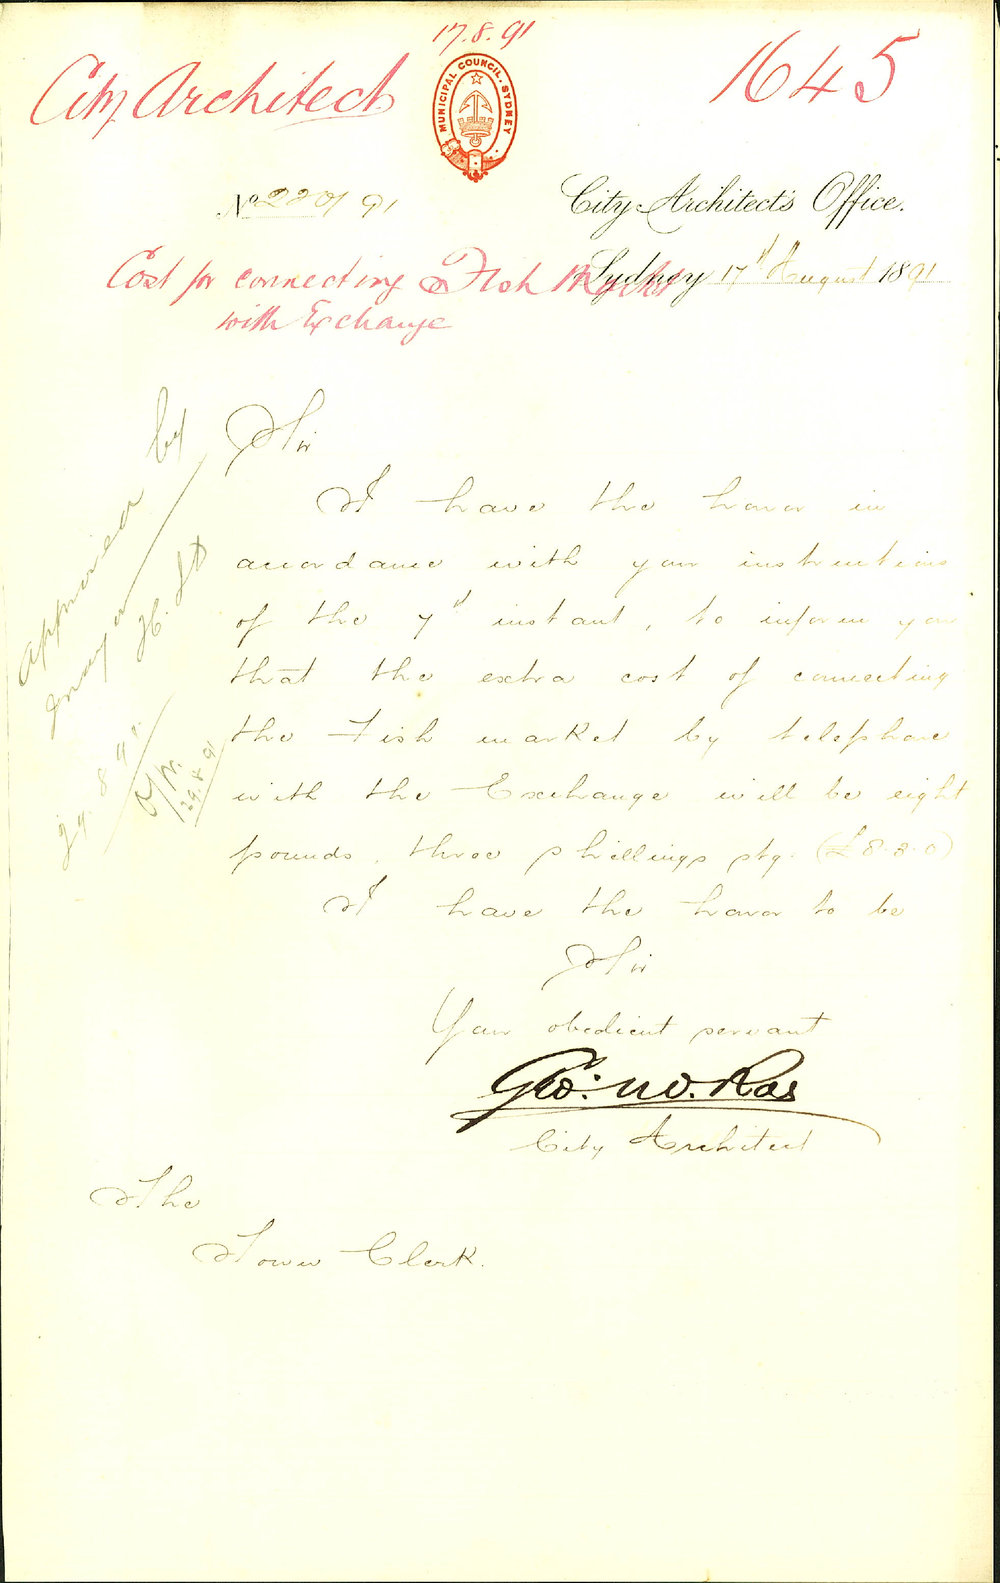 17.8.91
City Architect
1645
MUNICIPAL COUNCIL. SYDNEY
No 220/91
City Architect's Office.
Sydney 17th August 1891
Cost for connecting Fish Market
with Exchange
Approved by
Mayor
29.8.91
29.8.91
Sir
I have the honor in
accordance with your instructions
of the 7th instant, to inform you
that the extra cost of connecting
the Fish market by telephone
with the Exchange will be eight
pounds, three shillings stg. (£8.3.0)
I have the honor to be
Sir
Your obedient servant
Geo: 
City Architect
The
Town Clerk.